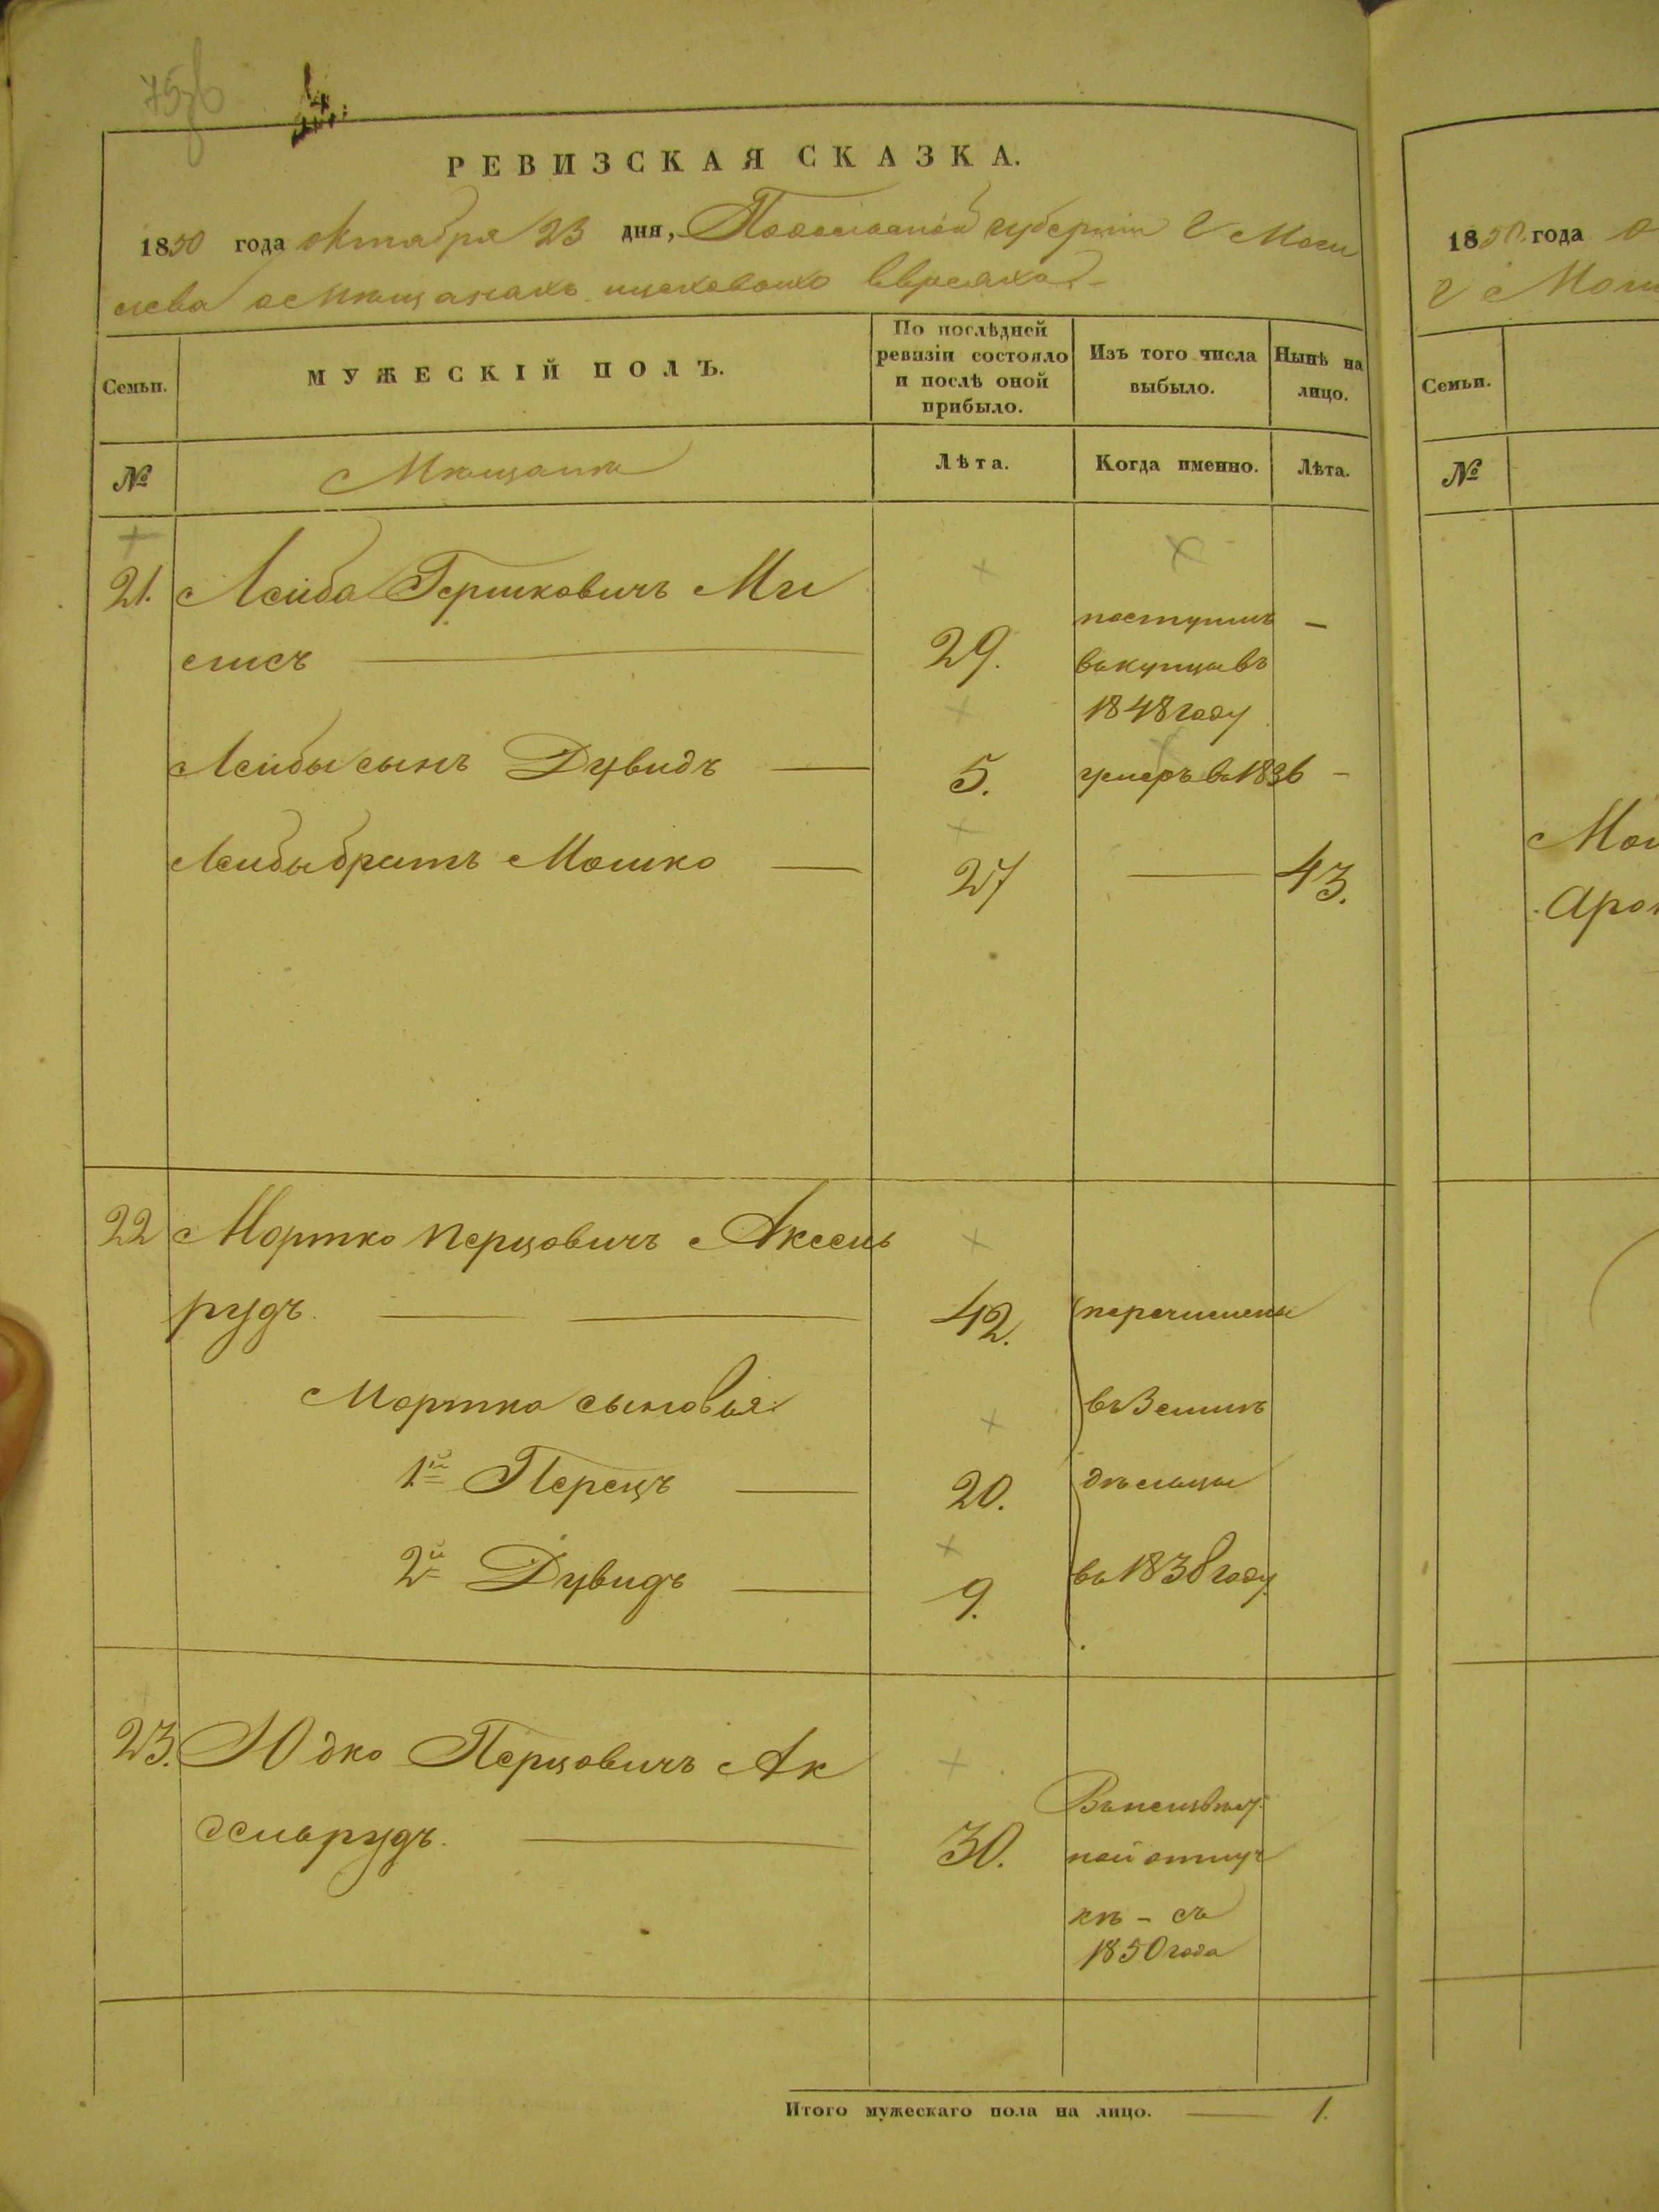 РЕВИЗСКАЯ СКАЗКА.
1850 года октября 23 дня, Подольской губернии г. Моги
лева о мѣщанахъ цеховыхъ евреяхъ
Семьи.
МУЖЕСКІЙ ПОЛЪ.
По послѣдней
ревизіи состояло
и послѣ оной
прибыло.
Изъ того числа
выбыло.
Нынѣ на
лицо.
№
Мѣщане
Лѣта.
Когда именно.
Лѣта.
21. Лейба Гершковичъ
29. поступилъ —
въ купцы въ
1848 году
Лейбы сынъ Дувидъ — 5. умеръ въ 1836 —
Лейбы братъ Мошко — 27 — 43.
22 Мортко Перцовичъ Аксель
рудъ. — 42. перечислены
Мортка сыновья: въ Земле
1й Перецъ — 20. дѣльцы
2й Дувидъ — 9. въ 1838 году.
23. Юдко Перцовичъ Ак
сельрудъ. — 30.
ной отлуч
кѣ - съ
1850 года
Итого мужескаго пола на лицо. — 1.
1850 года
Семьи.
№